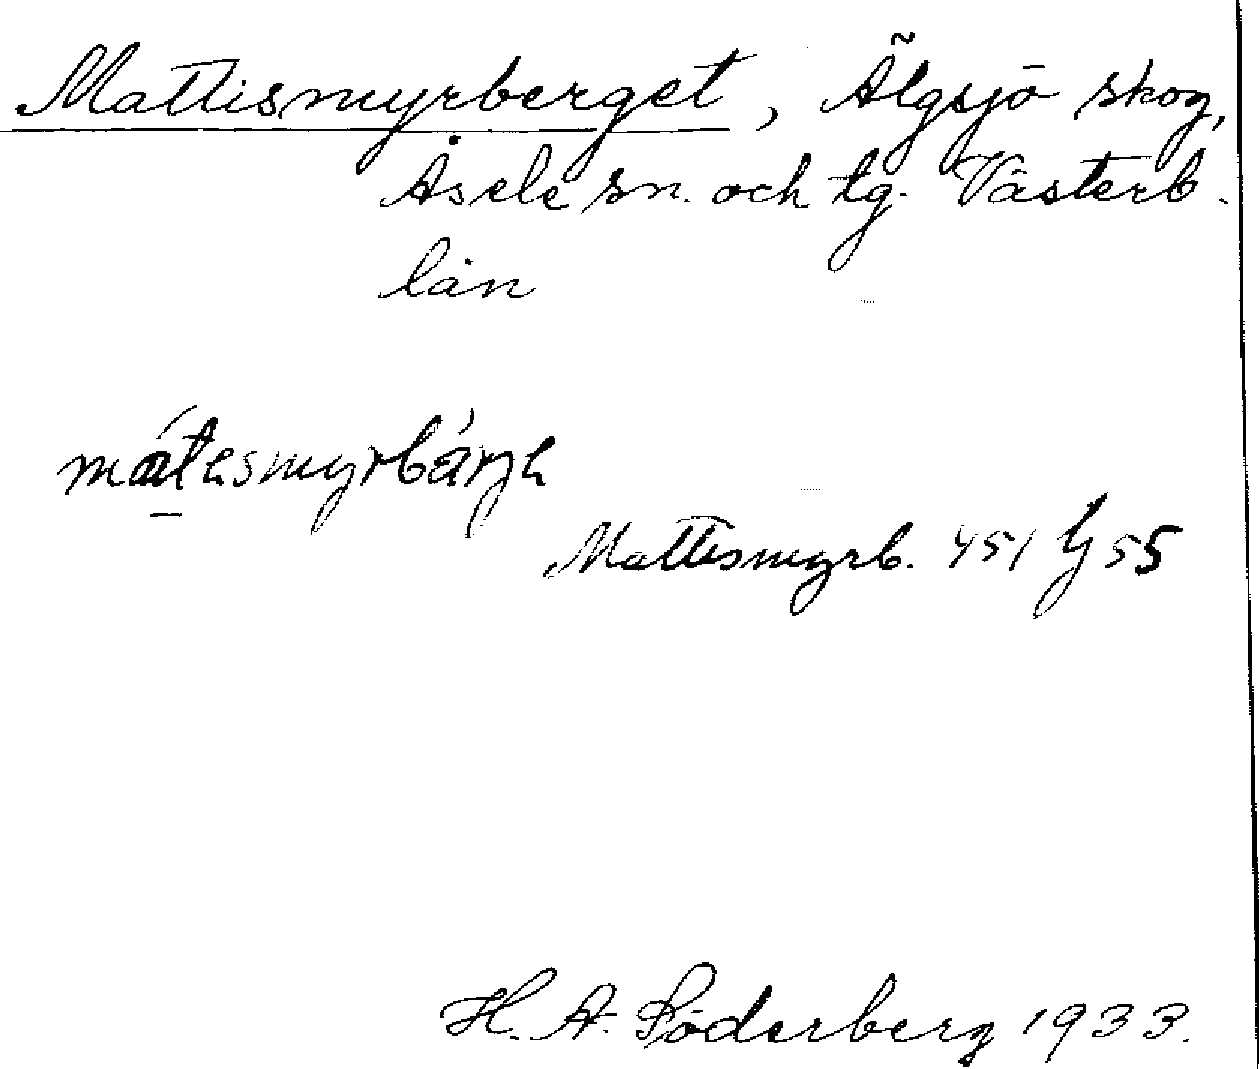 Mattismyrberget, Älgsjö skog,
Åsele sn. och tg. Västerb.
län
Mattismyrb. 451 Ly 55
H. A. Söderberg 1933.